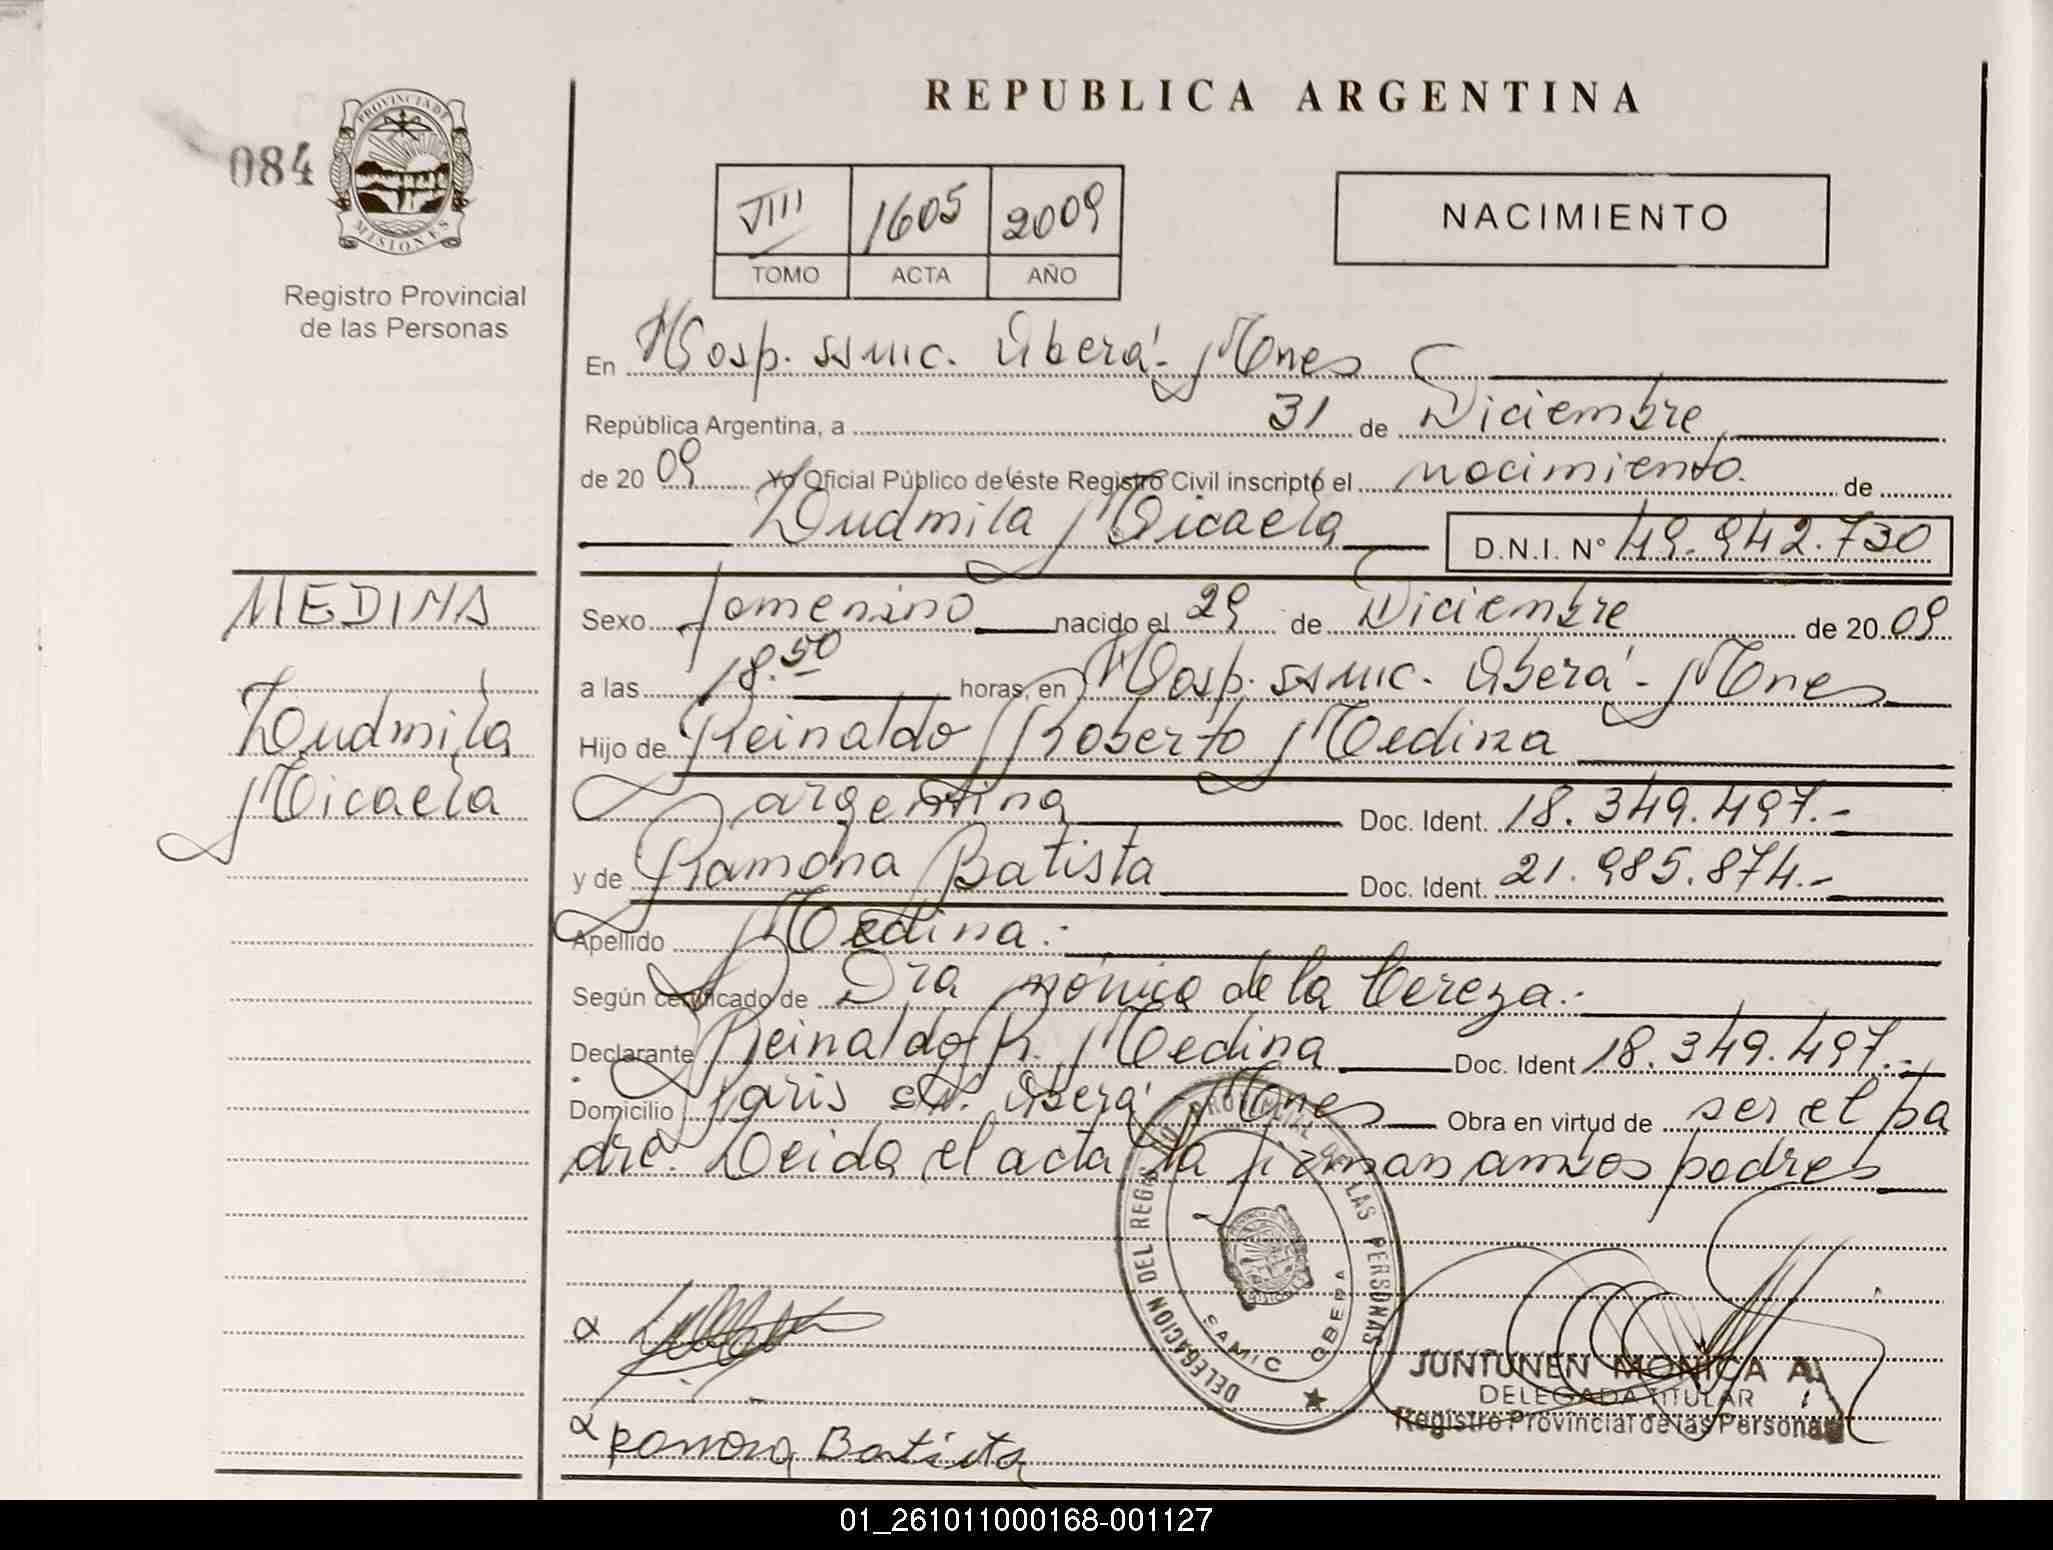 REPUBLICA ARGENTINA
084
PROVINCIA DE
MISIONES
Registro Provincial
de las Personas
VIII 1605 2009
TOMO ACTA AÑO
NACIMIENTO
En Hosp. SSMIC. Oberá - Mnes
República Argentina, a 31 de Diciembre
de 20 09 Yo Oficial Público de éste Registro Civil inscripto el nacimiento. de
Ludmila Micaela D.N.I. N° 49.942.730
MEDINA
Ludmila
Micaela
Sexo femenino nacido el 29 de Diciembre de 20 09
a las 18.50 horas, en Hosp. SSMIC. Oberá - Mnes
Hijo de Reinaldo Roberto Medina
argentina Doc. Ident. 18.349.497.-
y de Ramona Batista Doc. Ident. 21.985.874.-
Apellido Medina.-
Según certificado de Dra Mónica de la Cereza.-
Declarante Reinaldo R. Medina Doc. Ident 18.349.497.-
Domicilio Paris s/n. Oberá - Mnes Obra en virtud de ser el pa
dre. Leida el acta la firman ambos padres
DELEGACION DEL REG. PROVINCIAL DE LAS PERSONAS
SAMIC OBERA
JUNTUNEN MONICA A.
DELEGADA TITULAR
Registro Provincial de las Personas
Ramona Batista
01_261011000168-001127